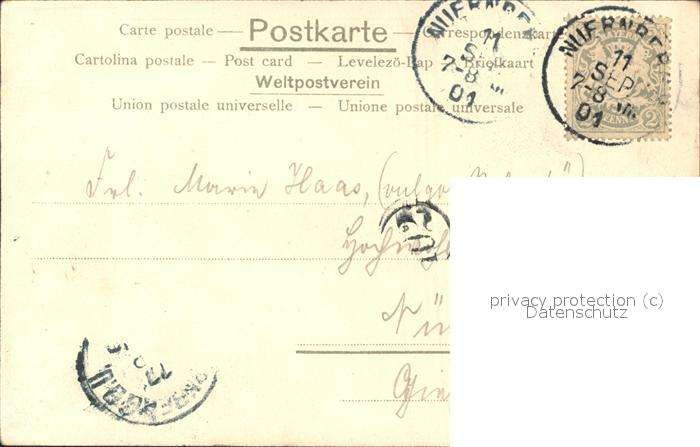 Carte postale — Postkarte — Correspondenzkarte
Cartolina postale — Post card — Levelező-Lap — Briefkaart
Weltpostverein
Union postale universelle — Unione postale universale
NUERNBERG
11
SEP
7-8
01
NUERNBERG
11
SEP
7-8
01
Frl. Marie Haas, (vulgo
Nü
privacy protection (c)
Datenschutz